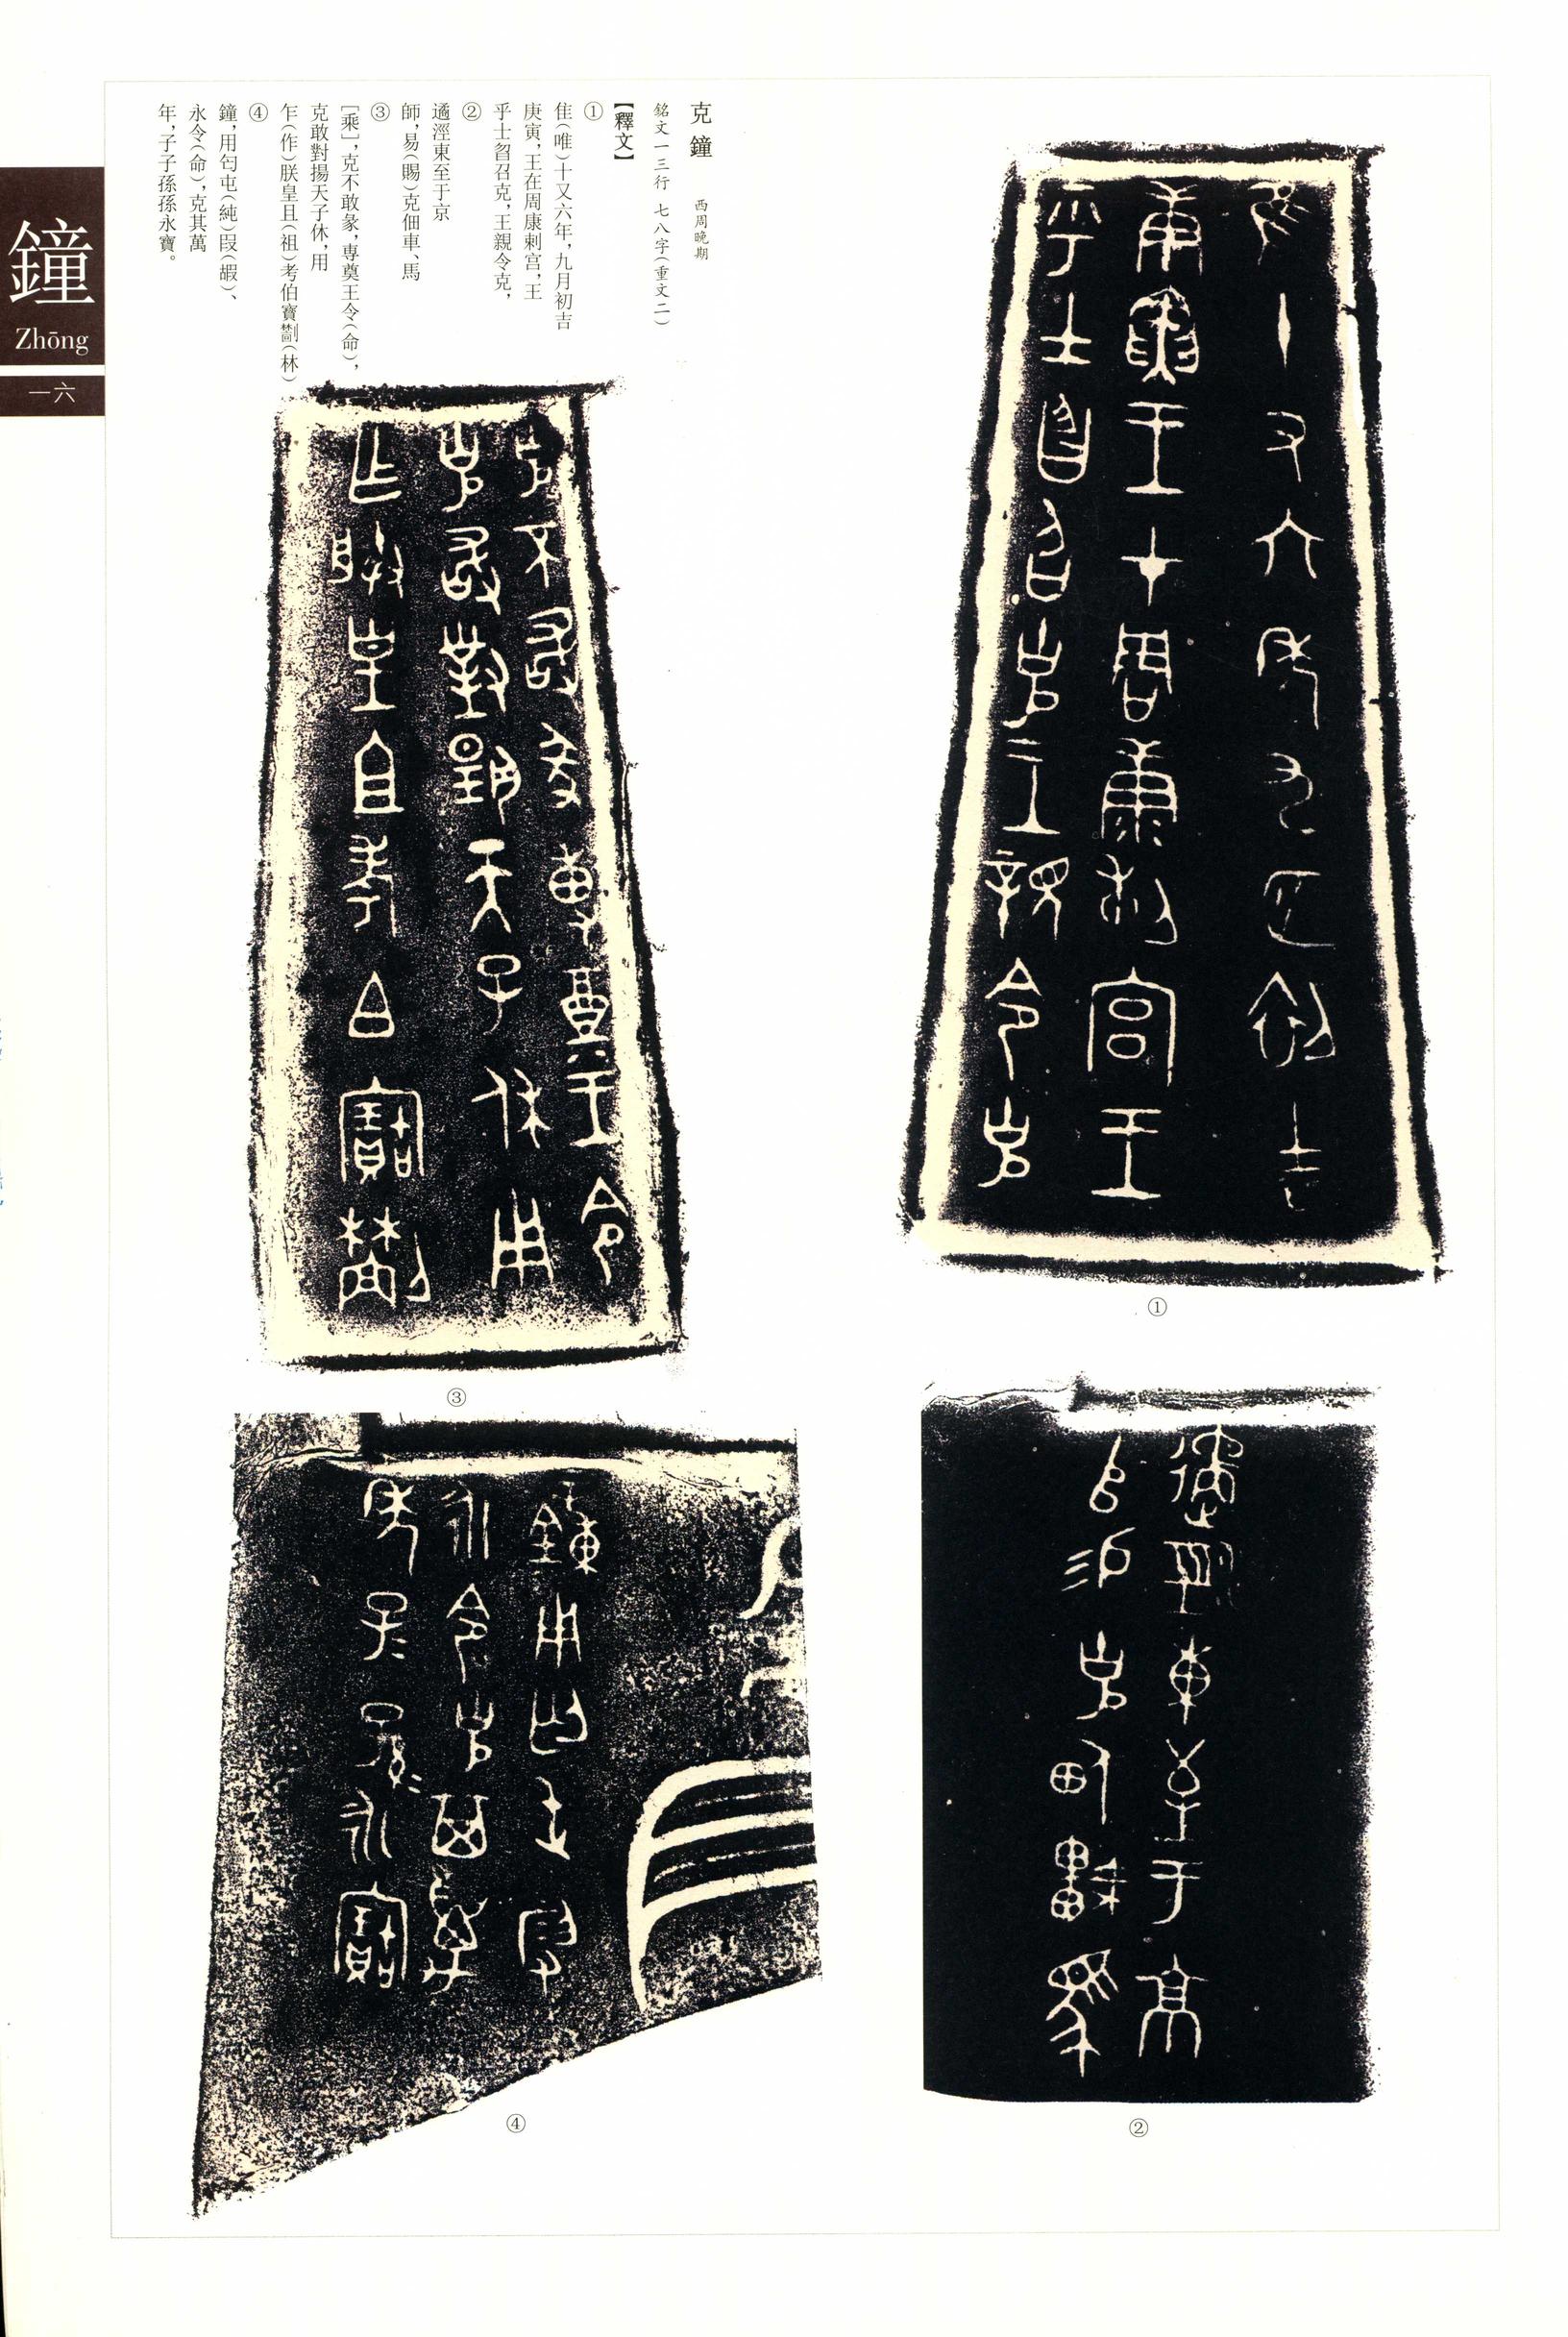 克鐘 西周晚期
銘文一三行 七八字（重文二）
【釋文】
①
隹（唯）十又六年，九月初吉
庚寅，王在周康剌宫，王
乎士曶召克，王親令克，
②
遹涇東至于京
師，易（賜）克佃車、馬
③
［乘］，克不敢彖，専奠王令（命），
克敢對揚天子休，用
乍（作）朕皇且（祖）考伯寶㔣（林）
④
鐘，用匄屯（純）叚（嘏）、
永令（命），克其萬
年，子子孫孫永寶。
鐘
Zhōng
一六
①
②
③
④